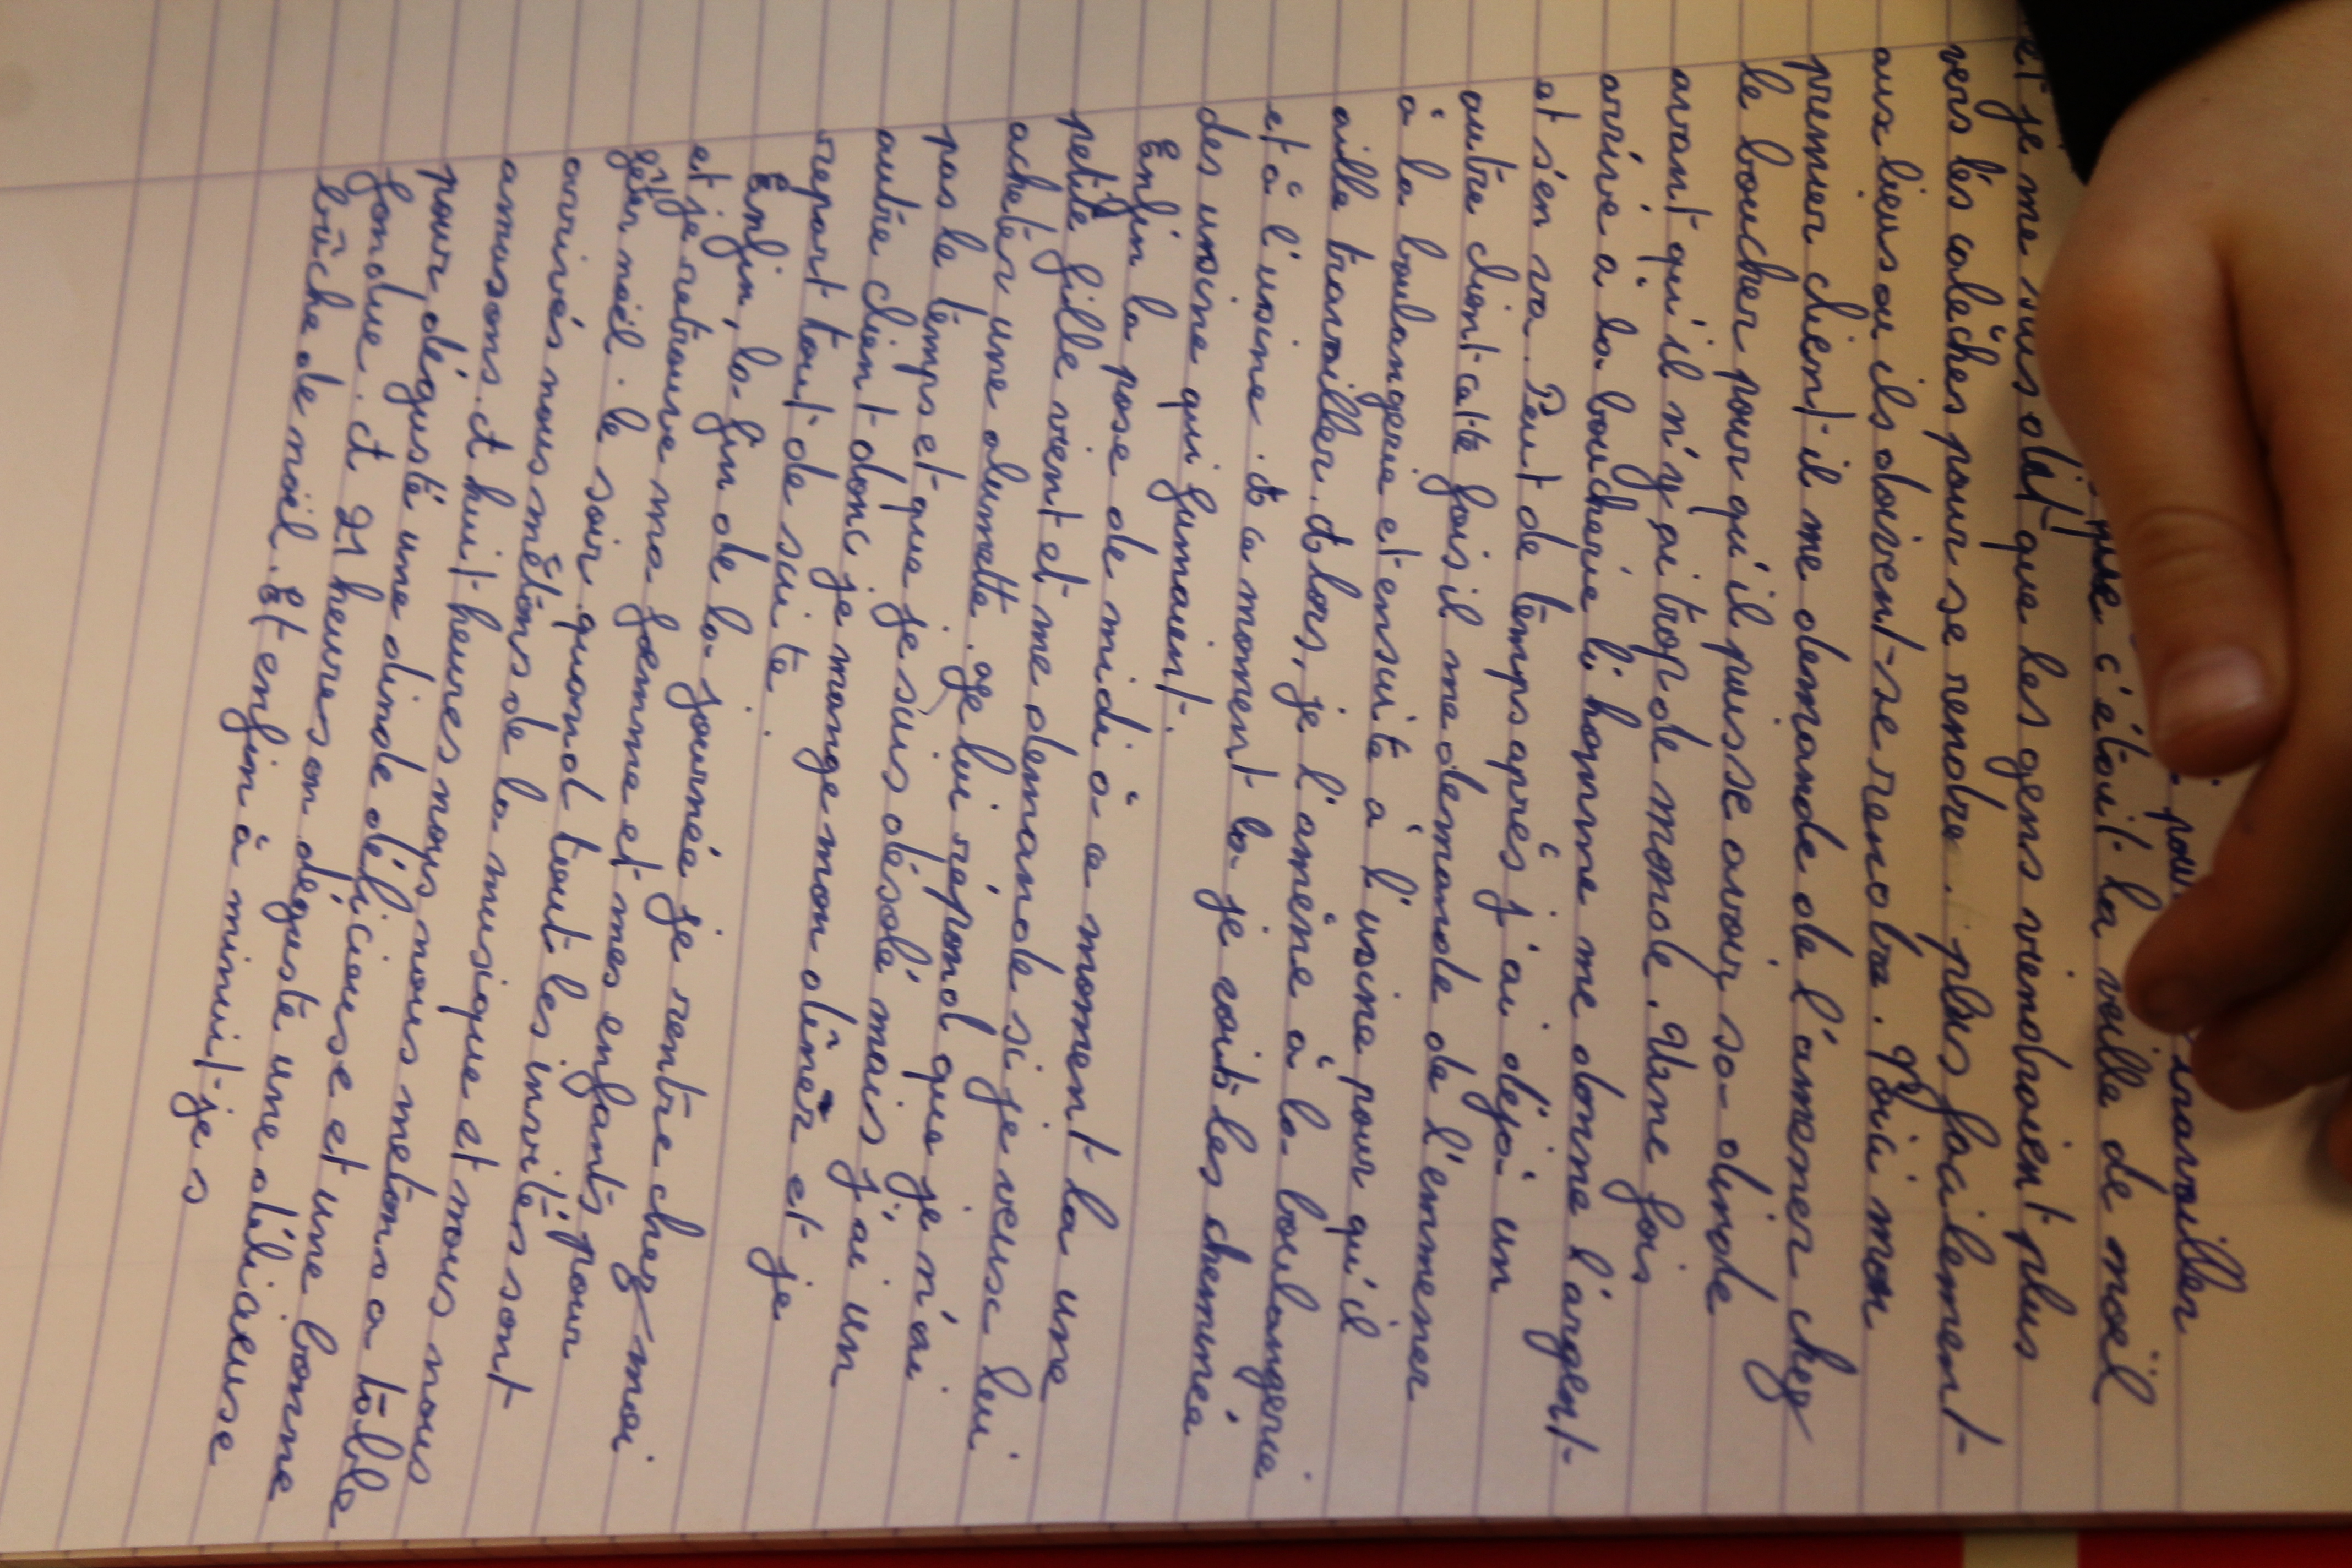 pour travailler
que c'était la veille de noël
et je me suis dit que les gens viendraient plus
vers lés calèches pour se rendre. plus facilement
aux lieus ou ils doivent se rendre. Voici mon
premier client il me demande de l'amener chez
le boucher pour qu'il puisse avoir sa dinde
avant qu'il n'y ai trop de monde. Une fois
arrivé à la boucherie l'homme me donne l'argent
et s'en va. Peut de temps après j'ai déjà un
autre client cette fois il me demande de l'emmener
à la boulangerie et ensuite à l'usine pour qu'il
aille travailler. Alors, je l'amène à la boulangerie
et à l'usine. A ce moment la je voit les cheminé
des usine qui fumaient.
Enfin la pose de midi à ce moment la une
petite fille vient et me demande si je veux lui
acheter une alumette. Je lui répond que je n'ai
pas le temps et que je suis désolé mais j'ai un
autre client donc je mange mon dîner et je
repart tout de suite.
Enfin, la fin de la journée je rentre chez moi
et je retrouve ma femme et mes enfants pour
fêter noël. le soir quand tout les invités sont
arrivés nous mêtons de la musique et nous nous
amusons. A huit heures nous nous metons a table
pour dégusté une dinde délicieuse et une bonne
fondue. A 21 heures on déguste une délicieuse
bûche de noël. Et enfin à minuit je s